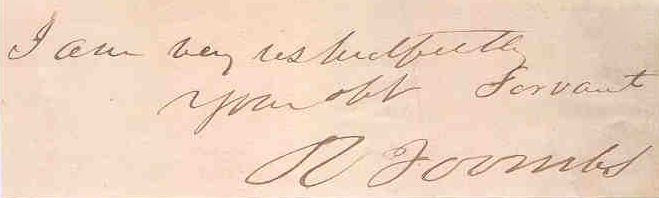 I am very respectfully
Your obt Servant
R Toombs